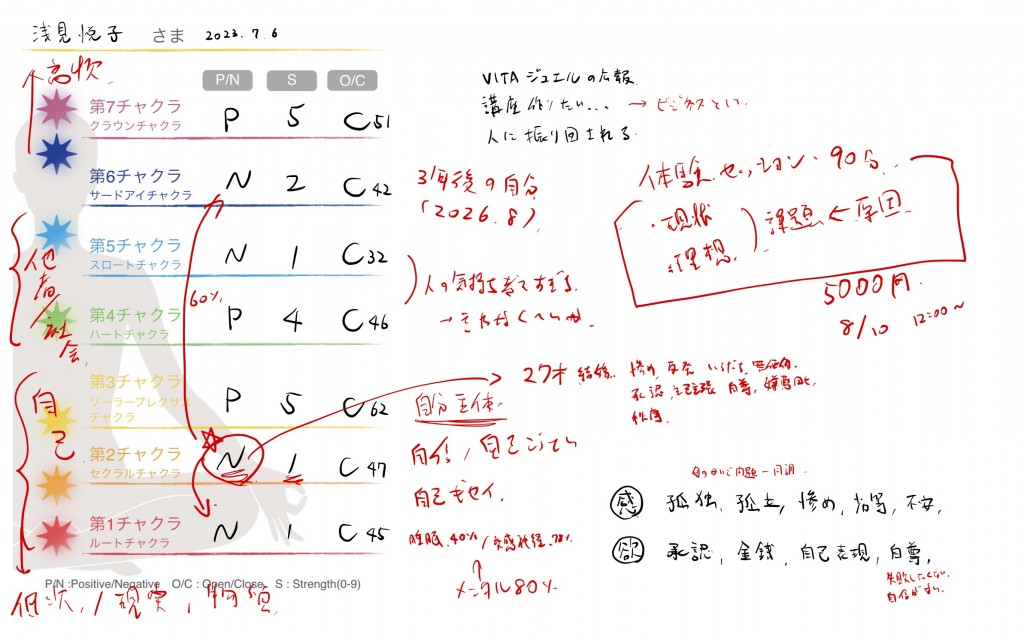 浅見悦子 さま 2023.7.6
高次
P/N S O/C
第7チャクラ
クラウンチャクラ
P 5 C51
第6チャクラ
サードアイチャクラ
N 2 C42
第5チャクラ
スロートチャクラ
N 1 C32
第4チャクラ
ハートチャクラ
P 4 C46
第3チャクラ
ソーラープレクサス
チャクラ
P 5 C62
第2チャクラ
セクラルチャクラ
N 1 C47
第1チャクラ
ルートチャクラ
N 1 C45
他者/社会
自己
60%
P/N :Positive/Negative O/C : Open/Close S : Strength(0-9)
低次, / 現実,
VITAジュエルの広報
講座作りたい... → ビジネスとして
人に振り回される
3年後の自分
(2026.8)
体験セッション・90分
・現状
理想
課題 ← 原因
5000円
8/10 12:00~
人の気持ち考えすぎる
27才 結婚
惨め,
承認, 自己主張 自尊,
自分主体
自己ギセイ
睡眠 40% / 交感神経
メンタル80%
感 孤独, 孤立, 惨め, 不安,
欲 承認, 金銭, 自己表現, 自尊,
失敗したくない